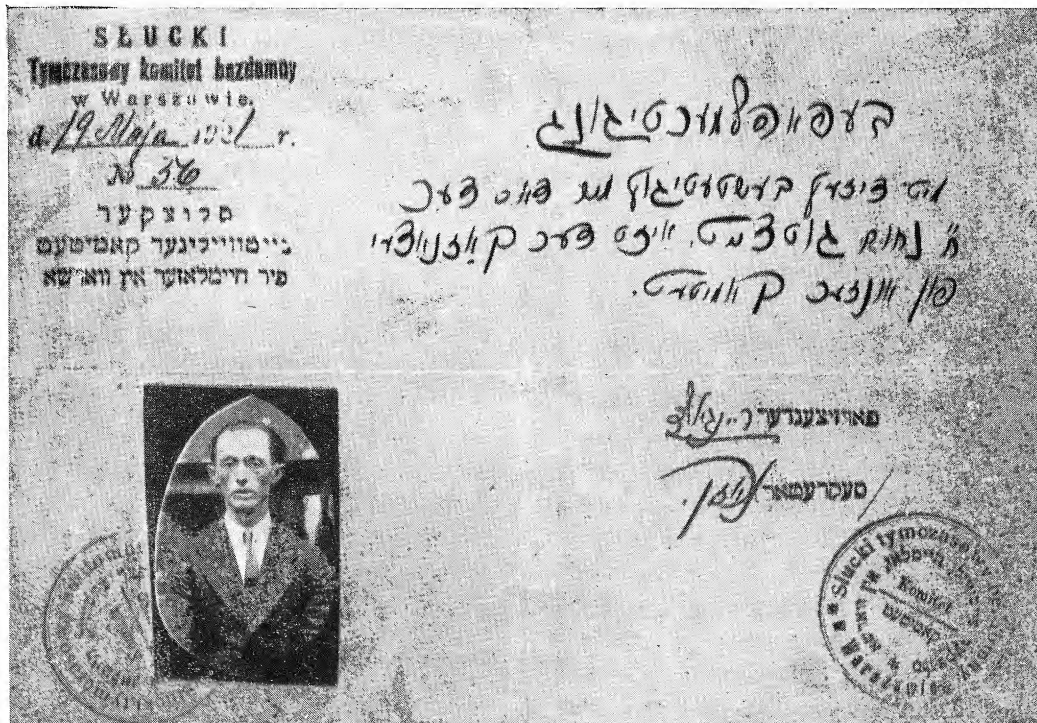 SŁUCKI
Tymczasowy komitet bezdomny
w Warszawie.
d. 19. Maja 1921 r.
№ 36
סלוצקער
צייטווייליגער קאמיטעט
פיר היימלאזער אין ווארשא
בעפאלמעכטיגונג
מיט דיזען בעשטעטיגען מיר דאס דער
ה' נחום גוטצײט, איזט דער קאזנאצעי
פון אונזער קאמיטעט.
פארזיצענדער
סעקרעטאר
Słucki tymczasowy
Komitet